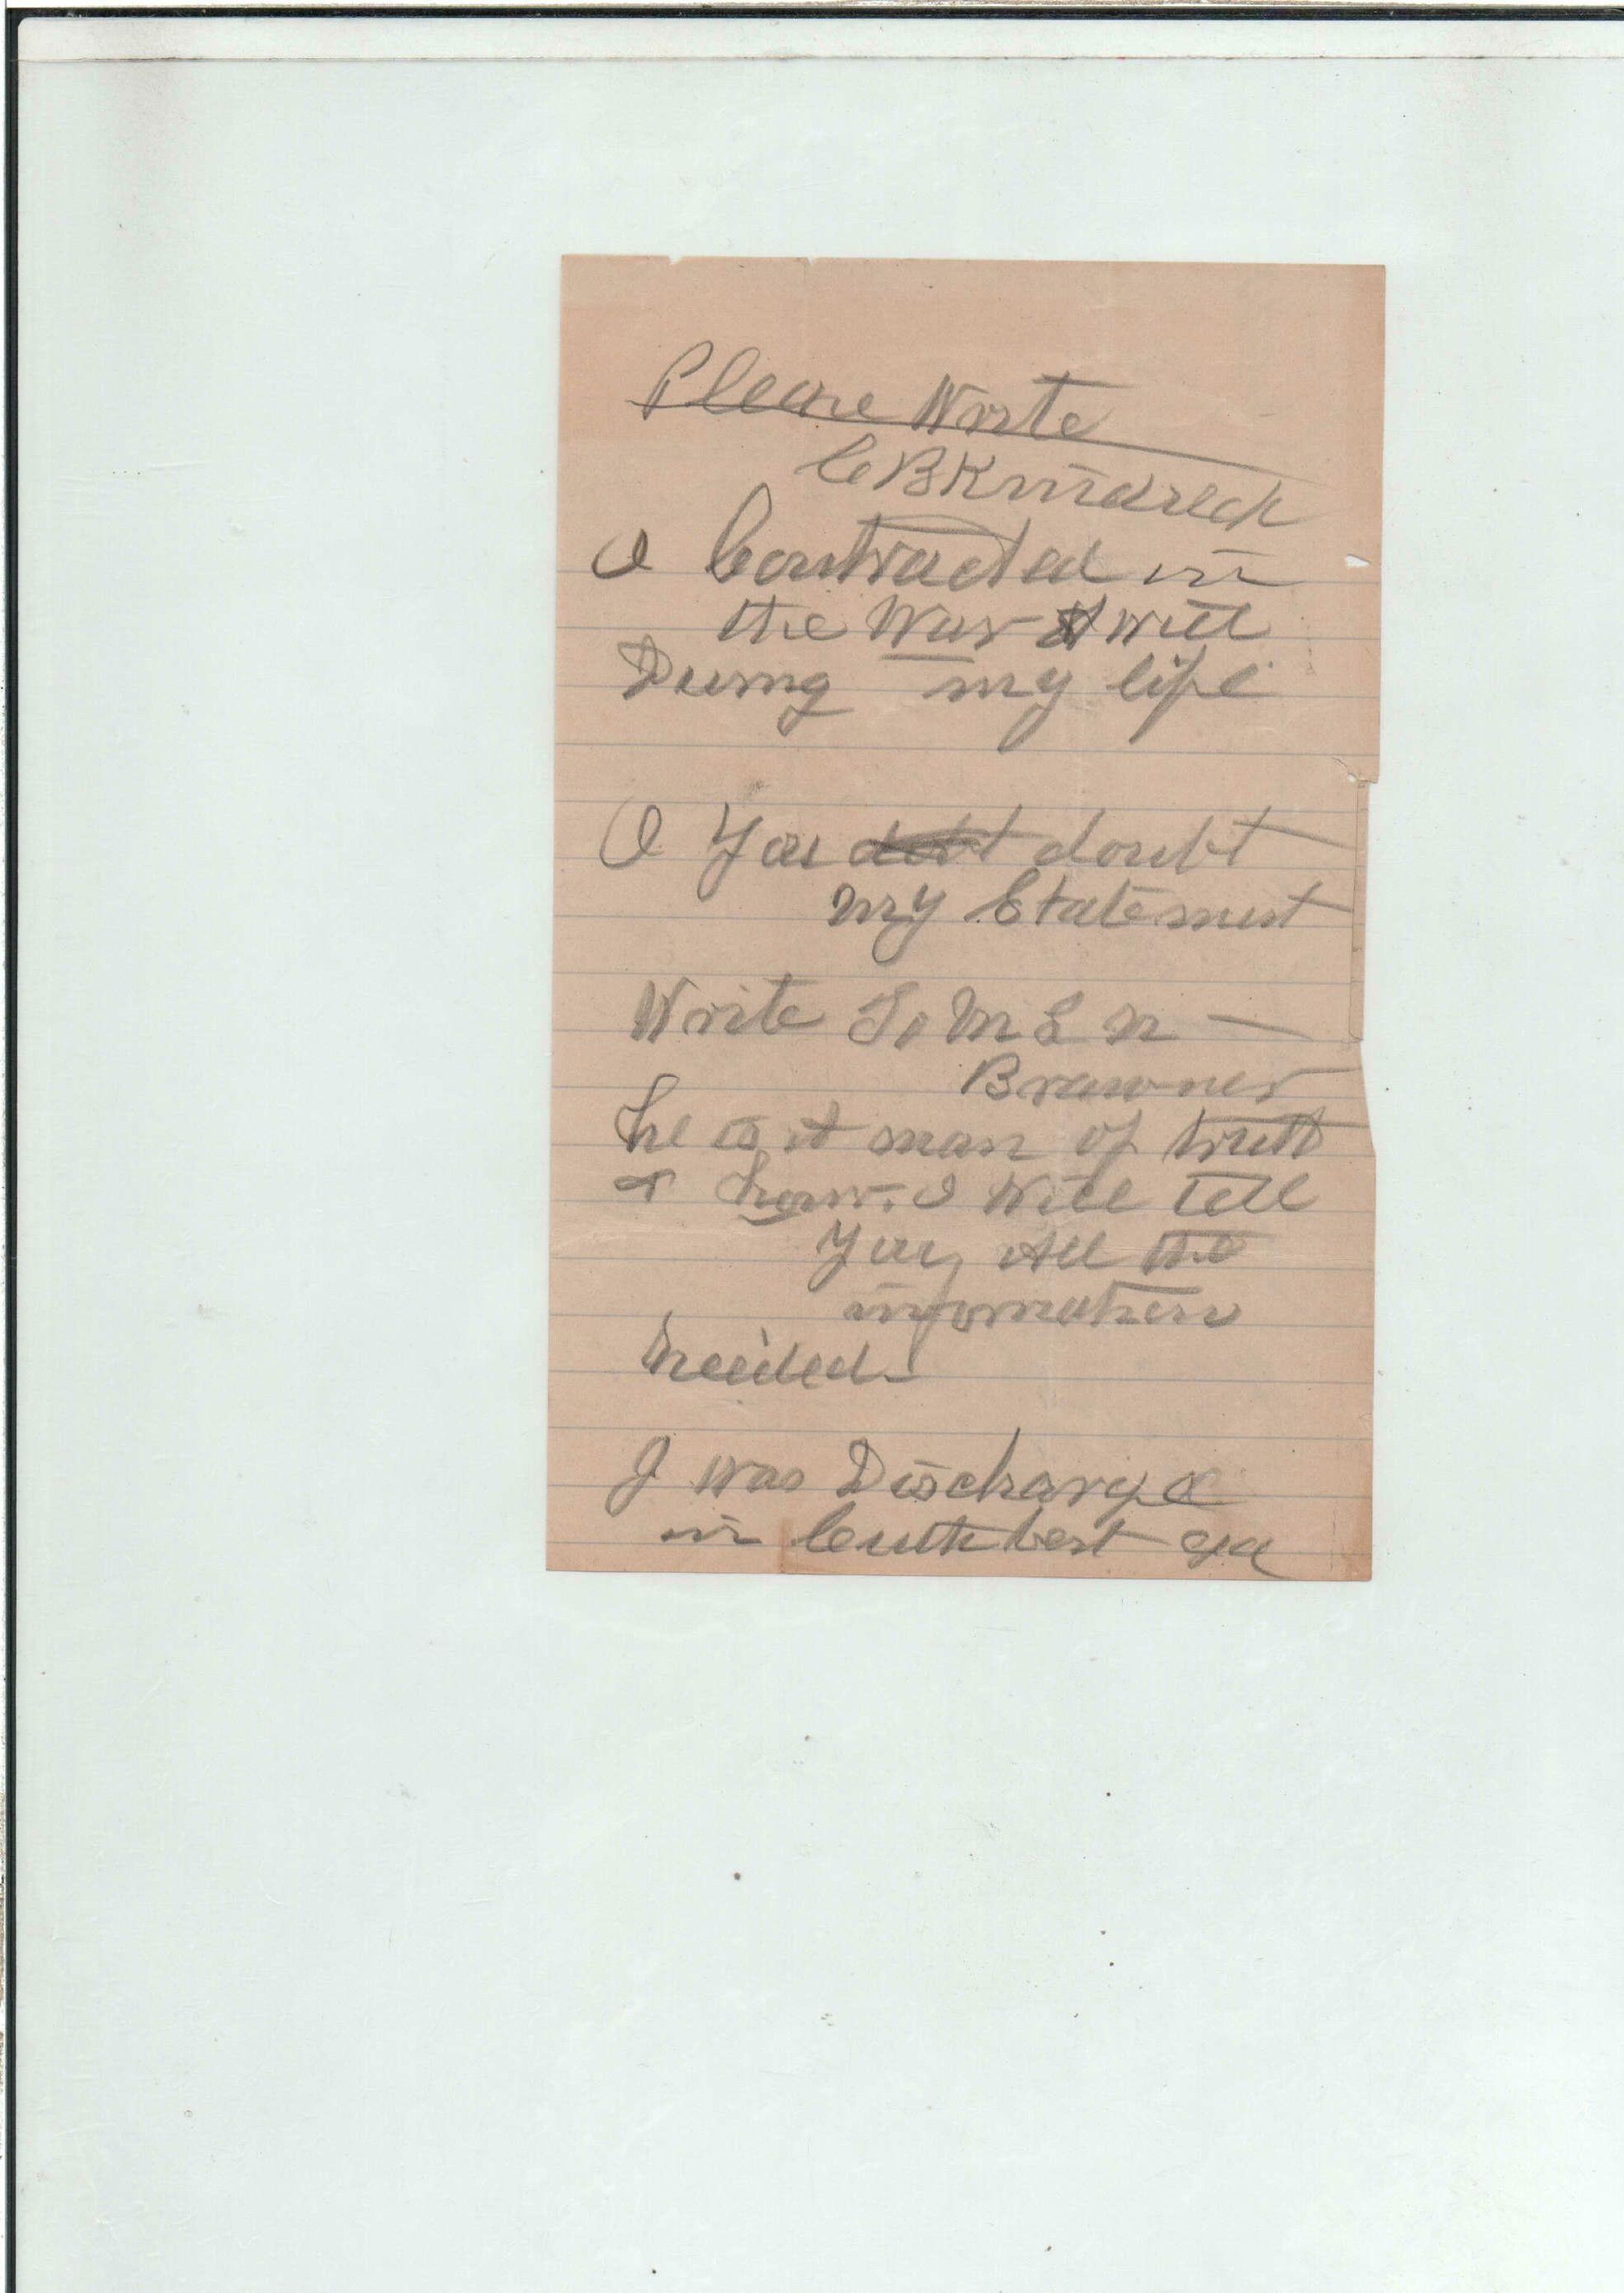 Please Write
C B Kindreck
I Contracted in
the War & will
During my life
I You doubt
my Statement
Write To M L N —
Brawner
he is A man of truth
& honr. I Will tell
You All the
information
needed
I was Discharge
in Cuthbert ga